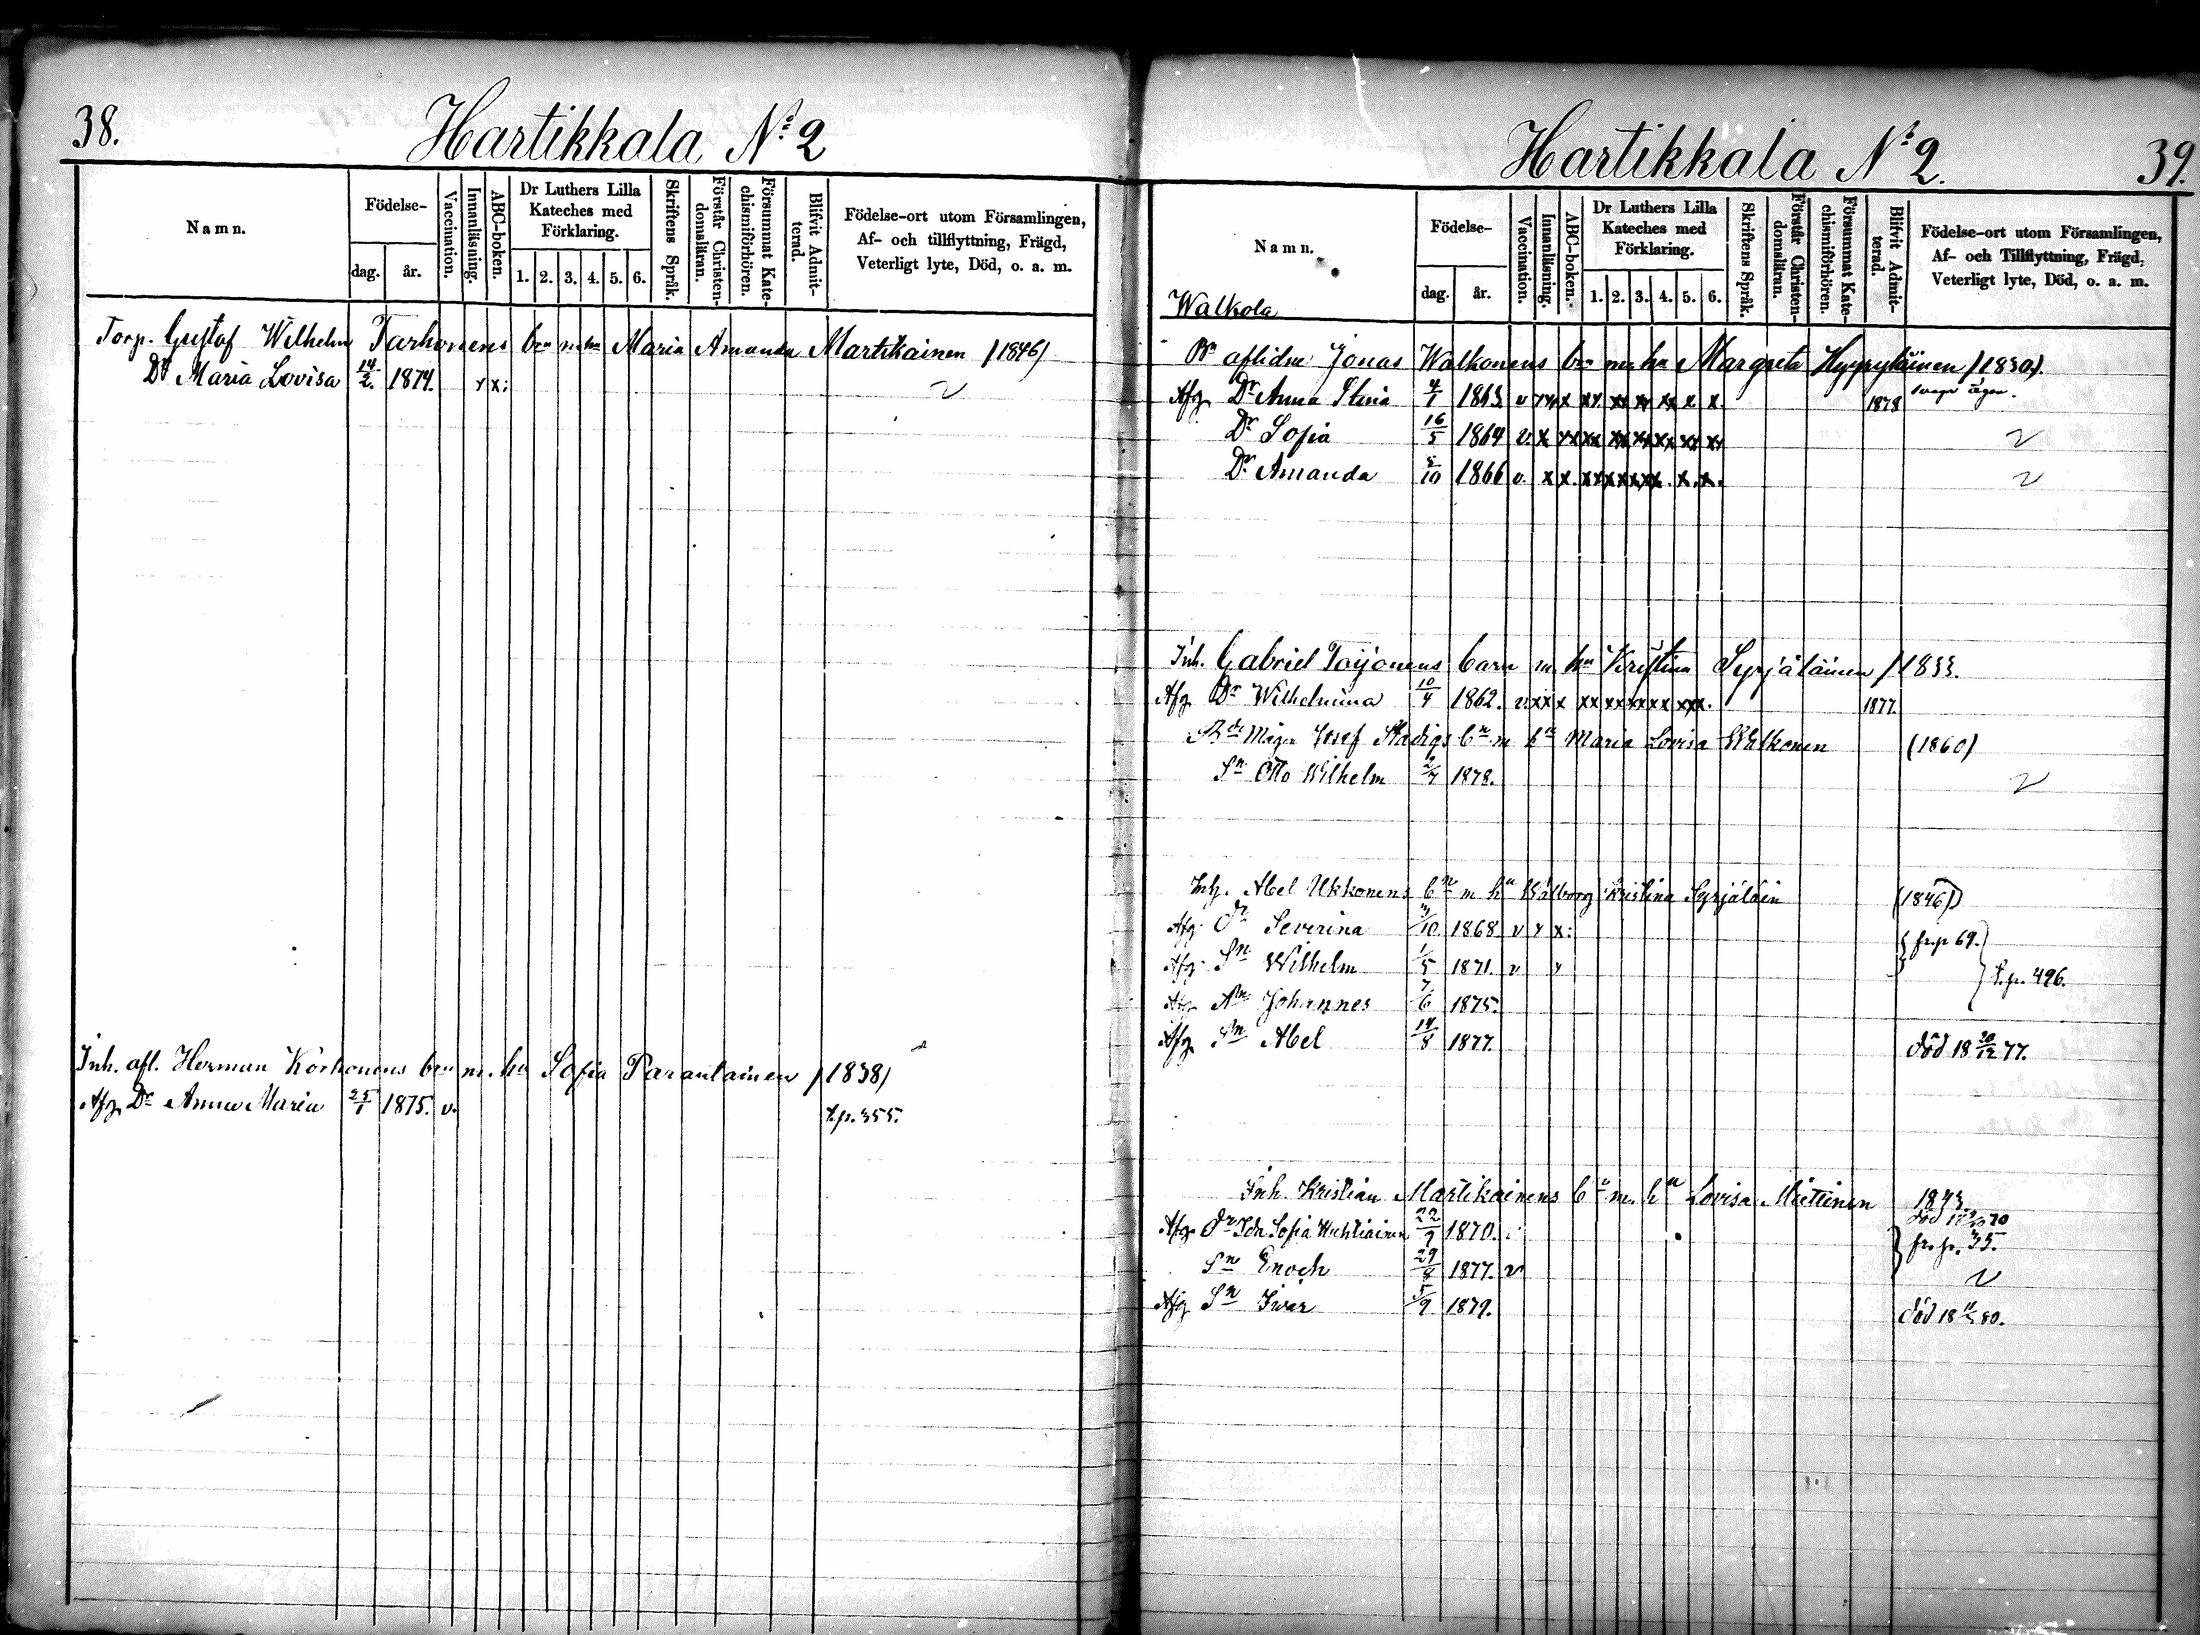 38.
Hartikkala N:o 2
Namn.
Födelse-
dag.
år.
Vaccination.
Innanläsning.
ABC-boken.
Dr Luthers Lilla Kateches med Förklaring.
1. 2. 3. 4. 5. 6.
Skriftens Språk.
Förstår Christendomsläran.
Försummat Katechismiförhören.
Blifvit Admitterad.
Födelse-ort utom Församlingen, Af- och tillflyttning, Frägd, Veterligt lyte, Död, o. a. m.
Torp. Gustaf Wilhelm Tarhonens b:n m. hu Maria Amanda Martikainen (1846)
Dr Maria Lovisa 14/2. 1874. x x:
Inh. afl. Herman Korhonens b:n m. hu Sofia Parantainen (1838)
Afg. Dr Anna Maria 25/1 1875. v. t.p. 355.
Hartikkala N:o 2.
39.
Namn.
Födelse-
dag.
år.
Vaccination.
Innanläsning.
ABC-boken.
Dr Luthers Lilla Kateches med Förklaring.
1. 2. 3. 4. 5. 6.
Skriftens Språk.
Förstår Christendomsläran.
Försummat Katechismiförhören.
Blifvit Admitterad.
Födelse-ort utom Församlingen, Af- och Tillflyttning, Frägd, Veterligt lyte, Död, o. a. m.
Walkola
aflidne Jonas Walkonens b:n m. hu Margreta Hyyryläinen (1830).
Afg. Dr Anna Stina 4/1 1863 v xx x xx xx xx xx x x. 1878
Dr Sofia 16/5 1864 v. x xx xx xx xx xx xx xx
Dr Amanda 1866 v. x x. xx xx xx x. x. x.
Inh. Gabriel Toijonens barn m. hu Kristina Syrjäläinen (1833.
Afg. Dr Wilhelmina 10/4 1862. v xx x xx xx xx xx xxx. 1877.
Josef Stadigs b:n m h:u Maria Lovisa Walkonen (1860)
S:n Otto Wilhelm 1878.
Inh. Abel Ukkonens b:n m h:u Walborg Kristina Syrjäläin (1846)
Afg. Dr Severina 1868 v x x: fr.p 69.
Afg. S:n Wilhelm 1/5 1871. v x t.p. 496.
Afg. S:n Johannes 7/6 1875.
Afg. S:n Abel 14/8 1877. död 18 20/12 77.
Inh. Kristian Martikainens b:n m. h:u Lovisa Miettinen 1843.
Afg. Dr Ida Sofia 22/9 1870. fr. p. 35.
S:n Enoch 29/8 1877. v
Afg. S:n Iwar 5/9 1879. död 18 80.